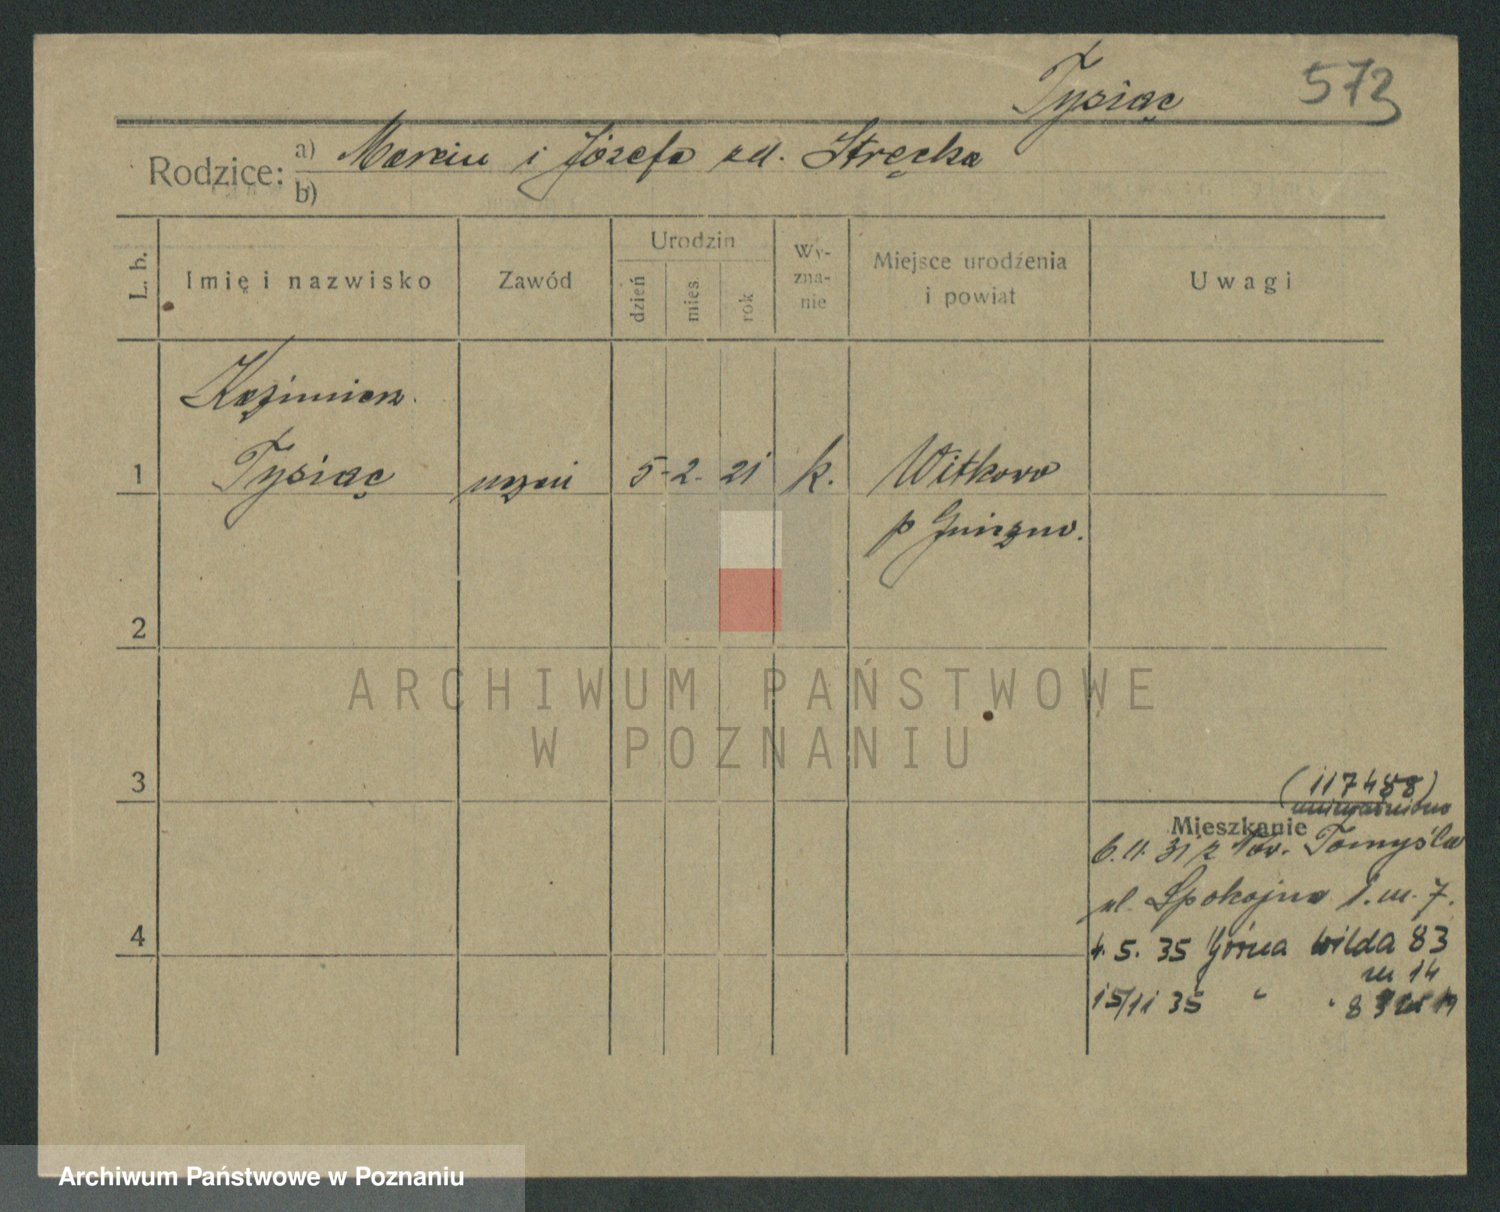 Tysiąc 572
Rodzice: a) Marcin i Józefa zd. Stręcka
b)
L. b. Imię i nazwisko Zawód Urodzin dzień mies. rok Wy-zna-nie Miejsce urodzenia i powiat Uwagi
Kazimierz
1 Tysiąc uczeń 5-2-21 k. Witkowo
p Gniezno.
2
ARCHIWUM PAŃSTWOWE
W POZNANIU
3
(117458)
unieważniono
Mieszkanie
6.11.31 z Now. Tomyśla
ul. Spokojna 1. m. 7.
4
4. 5. 35 Górna Wilda 83
m 14
15/11 35 " " 83 m 19
Archiwum Państwowe w Poznaniu